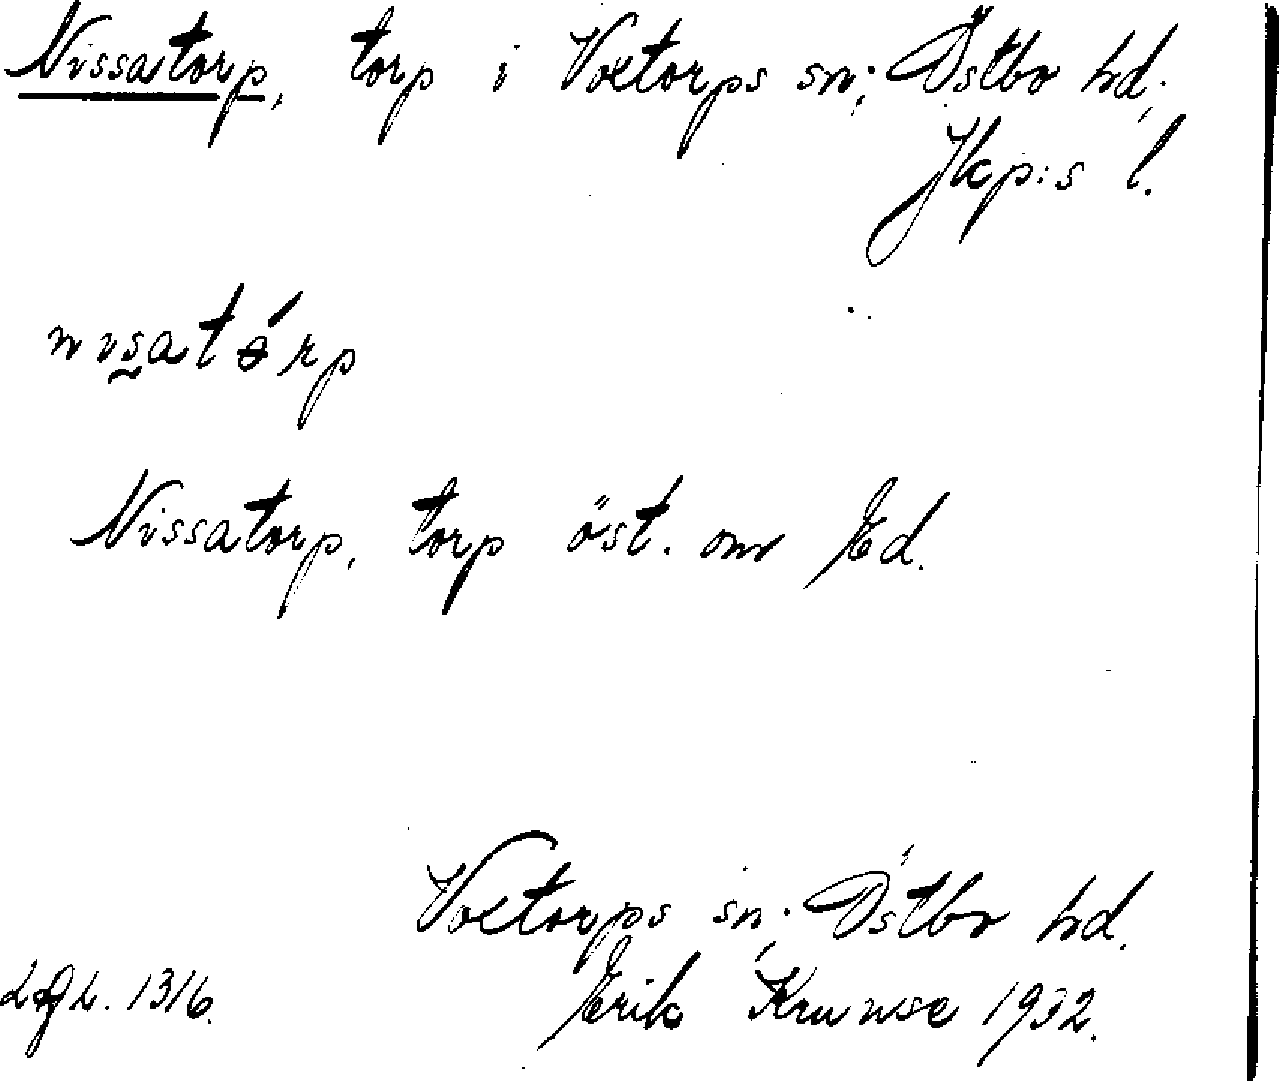 Nissatorp, torp i Voxtorps sn; Östbo hd;
Jkp:s l.
nisatórp
Nissatorp, torp öst. om Ed.
Voxtorps sn; Östbo hd.
Erik Krunse 1932.
1316.